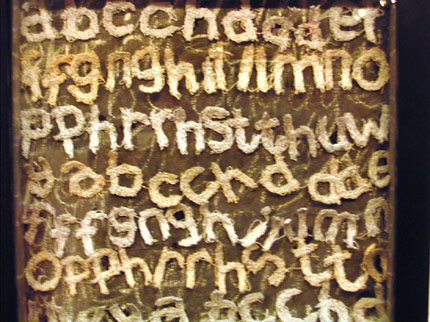 abcchdddef
ffgnghilllmno
pphrrhstthuw
yabcchddde
fffgnghilllmn
opphrrhstt